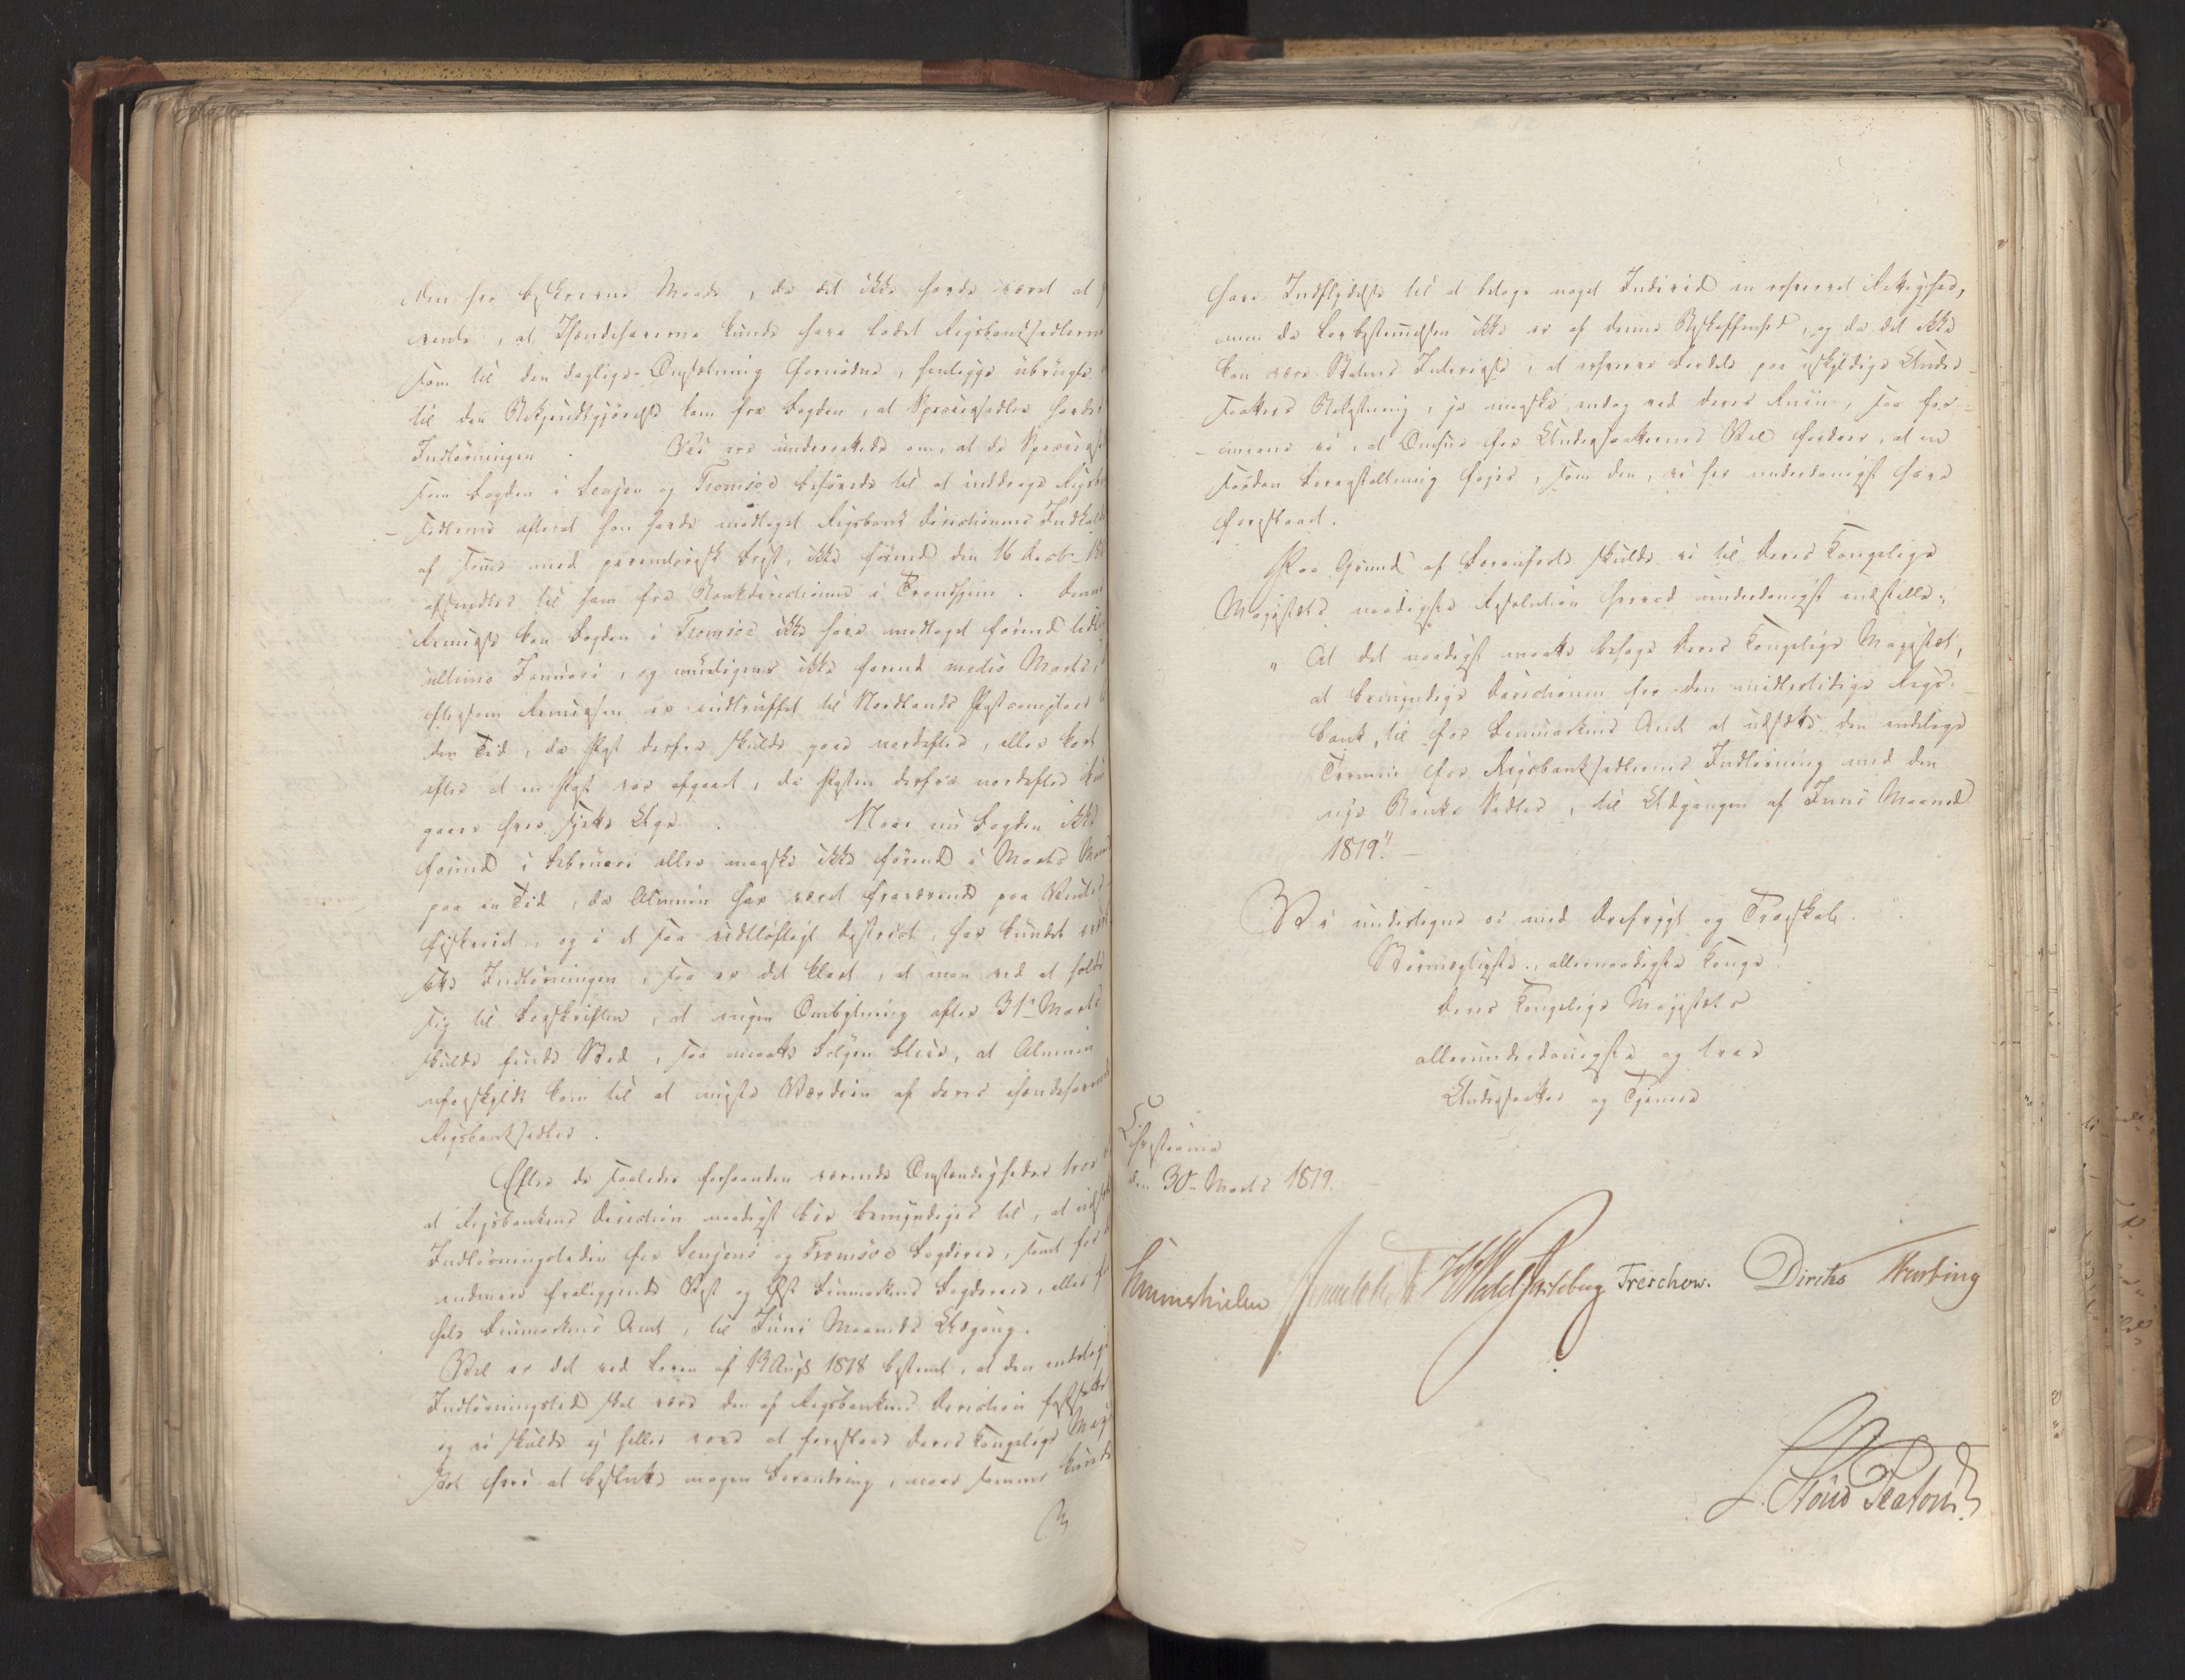 den her beskrevne Maade, da det ikke havde været at
vente, at Ihændehaverne kunde have ladet Rigsbanksedlerne
som til den daglige Omsætning fornødne, henligge ubrugte
til den Bekjendtgjørelse kom fra Fogden, at Speciessedler havdes
Indløsningen. Vi ere underrettede om, at de Species
som Fogden i Senjen og Tromsöe behøvede til at inddrage Rigsbank
sedlerne efterat han havde modtaget Rigsbank Directionens Indkald
af samme med peremtorisk Frist, ikke førend den 16 Decbr 18
afsendtes til ham fra Bankdirectionen i Trondhjem. Denne
Remisse kan Fogden i Tromsöe ikke have modtaget førend
ultimo Januari, og mueligens ikke førend medio Marts,
eftersom Remissen er indtruffet til Nordlands Postcomptoir
den Tid, da Post derfra skulde gaae nordefter, eller kort
efter at en Post var afgaaet, da Posten derfra nordefter kun
gaaer hver siette Uge. Naar nu Fogden ikke
førend i Februari eller maaske ikke førend i Marts Maaned
paa en Tid, da Almuen har været fraværende paa Vinter
fiskeriet, og i et saa vidtløftigt District, har kundet
sætte Indløsningen, saa er det klart, at man ved at holde
sig til Forskriften, at ingen Ombytning efter 31te Marts
skulde finde Sted, saa maatte Følgen blive, at Almuen
uforskyldt kom til at miste Værdien af deres ihændehavende
Rigsbanksedler.
Efter de saaledes forhaanden værende Omstændigheder troe
at Rigsbankens Direction naadigst bør bemyndiges til, at udsætte
Indløsningstiden for Senjens og Tromsöe Fogderier, samt for
endmere fraliggende Vest og Øst Finmarkens Fogderier, eller
hele Finmarkens Amt, til Juni Maaneds Udgang.
Vel er det ved Loven af 13 Augs 1818 bestemt, at den endelige
Indløsningstid skal være den af Rigsbankens Direction fastsatte
og vi skulde ej heller vove at foreslaae Deres Kongelige Maje
stæt heri at beslutte nogen Forandring, naar samme kunde
have Indflydelse til at betage noget Individ en erhvervet Rettighed,
men da Lovbestemelsen ikke er af denne Beskaffenhed, og da det ikke
kan være Statens Interesse, at erhverve Fordele paa uskyldige Under-
saatters Bekostning, ja maaske endog ved deres Ruin, saa for-
-mene vi, at Omsorg for Undersaatternes Vel fordrer, at en
saadan Foranstaltning føjes, som den, vi her underdanigst have
foreslaaet.
Paa Grund af Foranførte skulde vi til Deres Kongelige
Majestæts naadigste Resolution herved underdanigst indstille:
"At det naadigst maatte behage Deres Kongelige Majestæt,
at bemyndige Directionen for den midlertidige Rigs-
bank, til for Finmarkens Amt at udsætte den endelige
Termin for Rigsbanksedlernes Indløsning med den
nye Banks Sedler, til Udgangen af Juni Maaned
1819." —
Vi undertegne os med Ærefrygt og Troskab.
Stormægtigste, allernaadigste Konge!
Deres Kongelige Majestæts
allerunderdanigste og troe
Undersaatter og Tjenere
Christiania
den 30te Marts 1819.
Sommerhielm Wedel Jarlsberg Treschow. Diriks Krebting